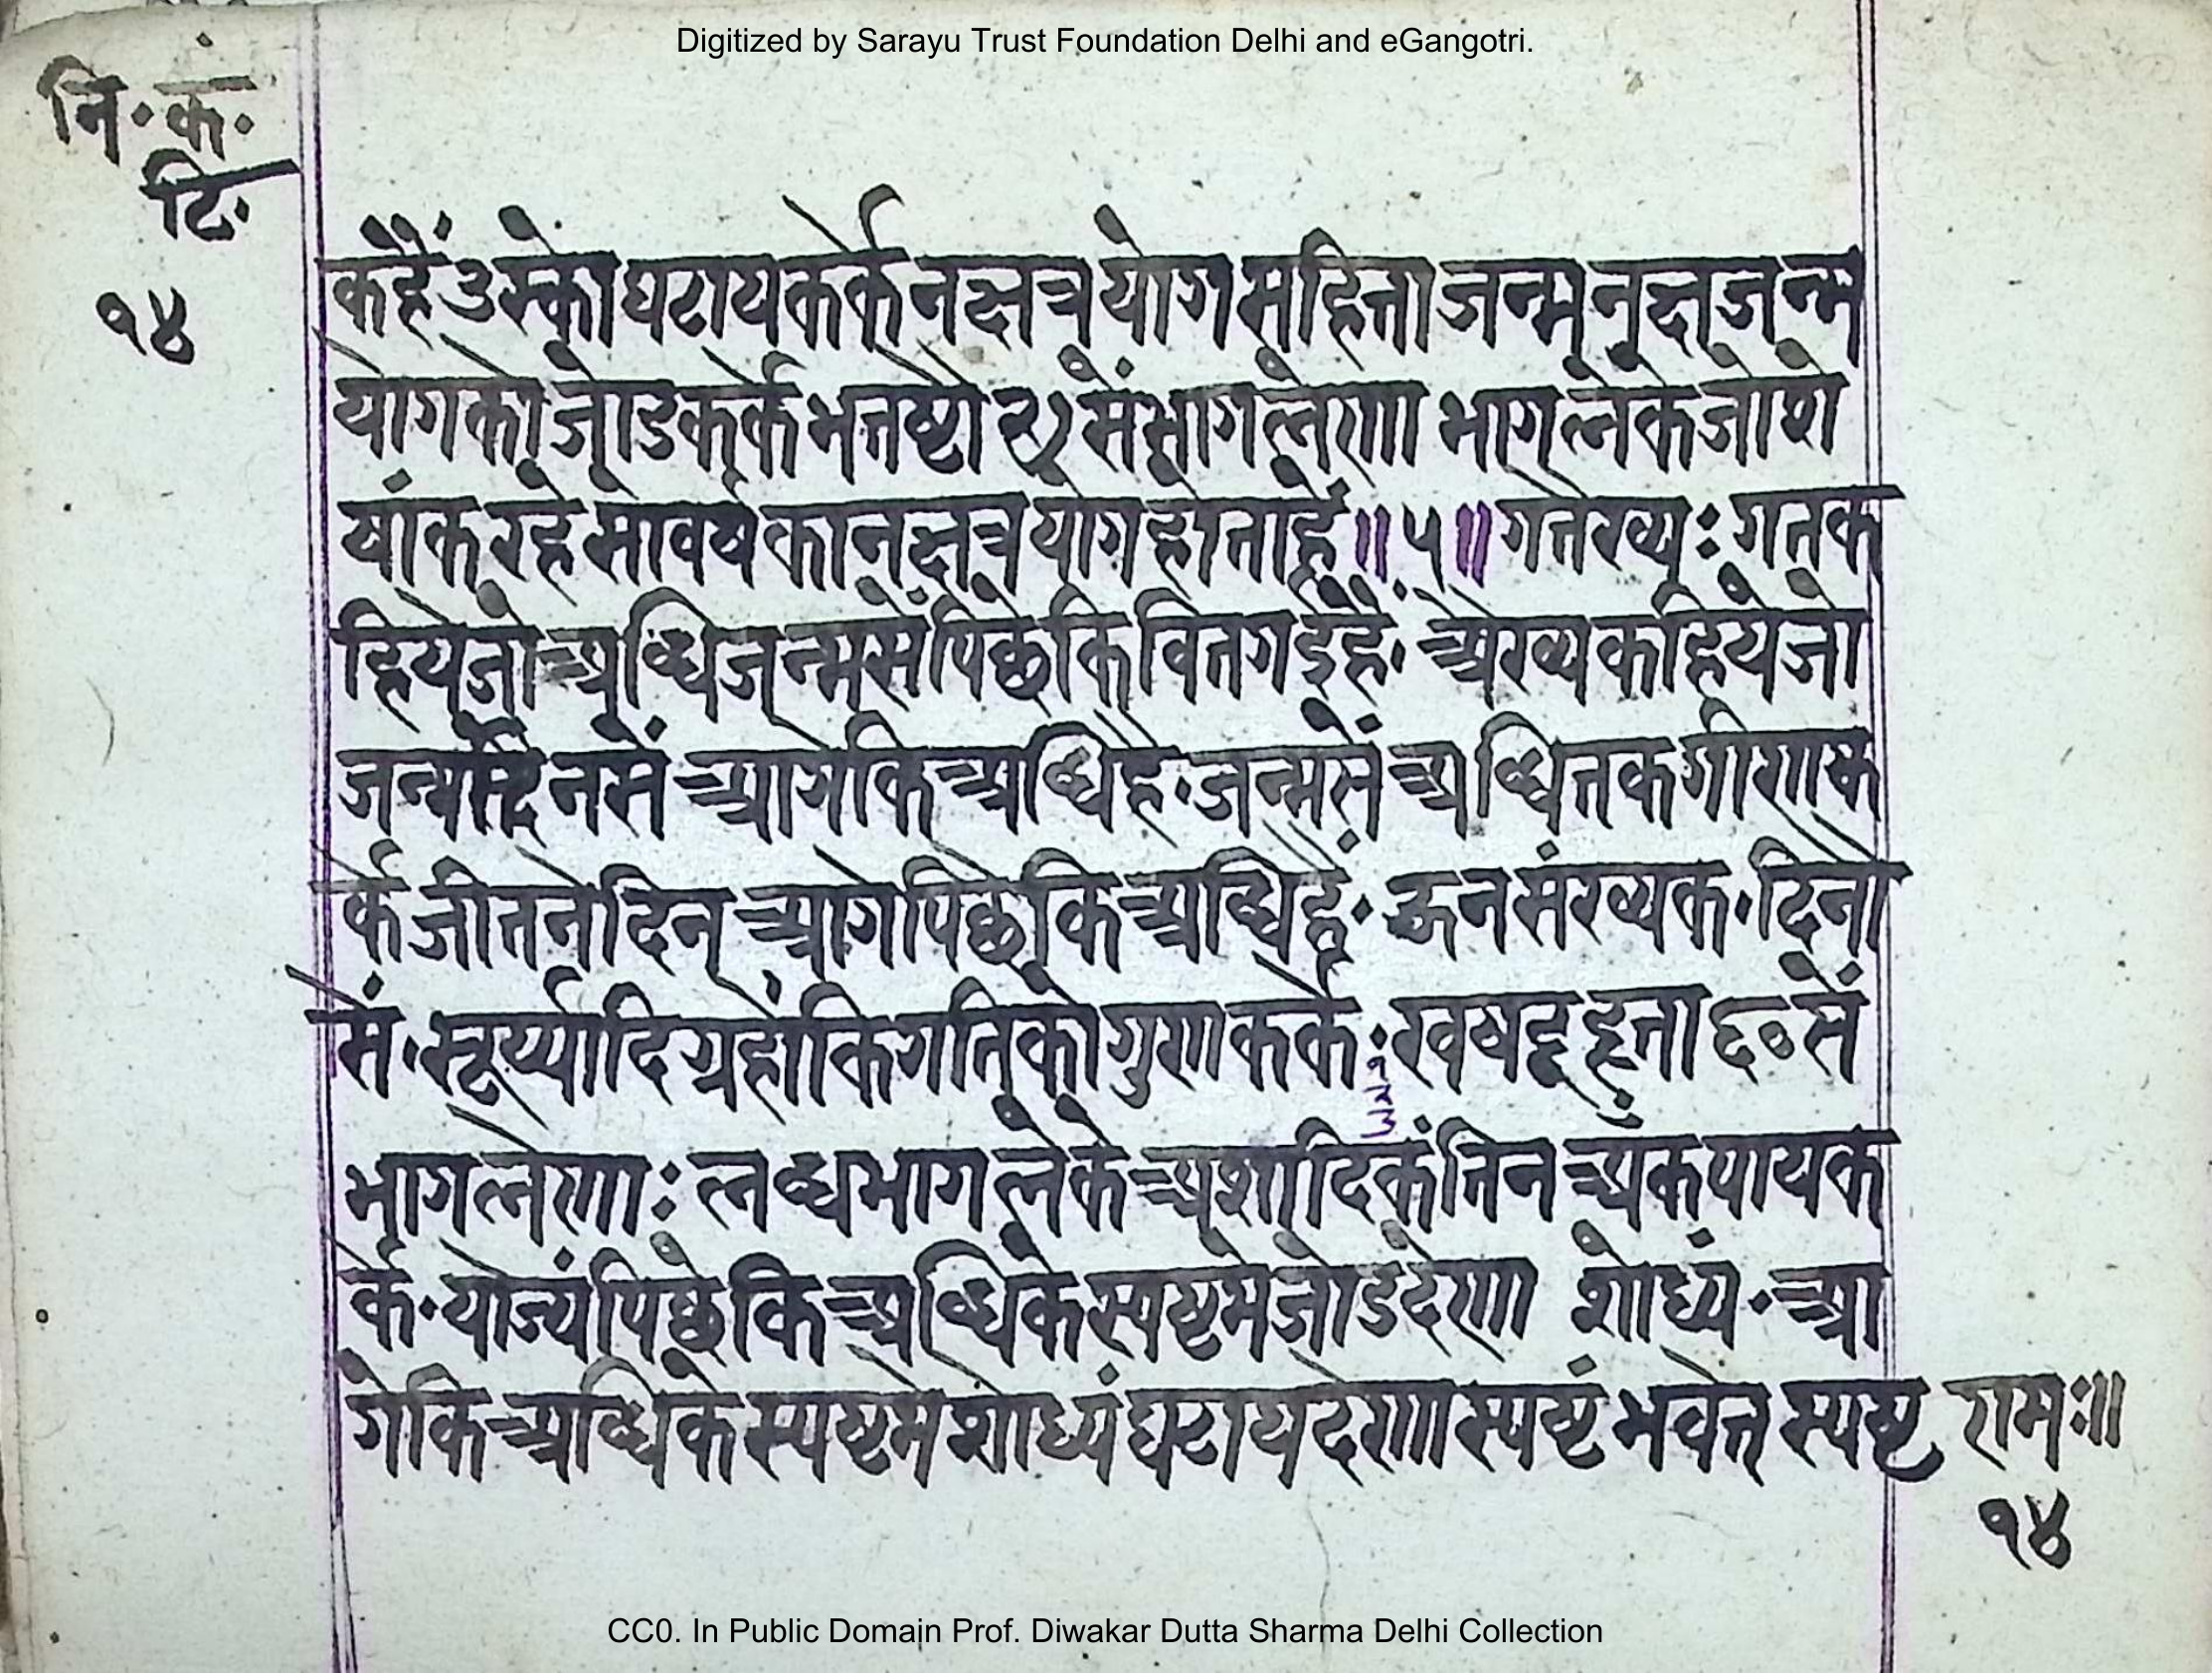 Digitized by Sarayu Trust Foundation Delhi and eGangotri.
नि॰कं॰
टि॰
१४
कहैं उस्को घटाय कर्के नक्षत्र योग सहिता जन्म नक्षत्र जन्म
योग को जोड कर्के भतष्टो २७ सें भाग लेणा भाग लेके जो शे
षांक रहे सो वर्ष का नक्षत्र योग होता है ॥५॥ गतेस्व्यः गत क
हिये जो अब्धि जन्म सें पिछे कि वित गई है॰ अेरव्य कहिये जो
जन्म दिन सें आगे कि अब्धि है॰ जन्म सें अब्धि तक गीणक
र्के जीतने दिन आगे पिछे कि अब्धि है॰ ऊन संरव्यक॰ दिनो
सें॰ सूर्य्यादि ग्रहों कि गति को गुण कर्के॰ खषट् हृता ६० सें
भाग लेणाः लब्ध भाग लेके अंशादिकं तिन अंक पाय क
र्के॰ योज्यं पिछे कि अब्धि के स्पष्ट मे जोड देणा शोध्यं॰ आ
गे कि अब्धि के स्पष्ट मे शोध्यं घटाय देणा स्पष्टं भवेत् स्पष्ट
रामः॥
१४
CC0. In Public Domain Prof. Diwakar Dutta Sharma Delhi Collection